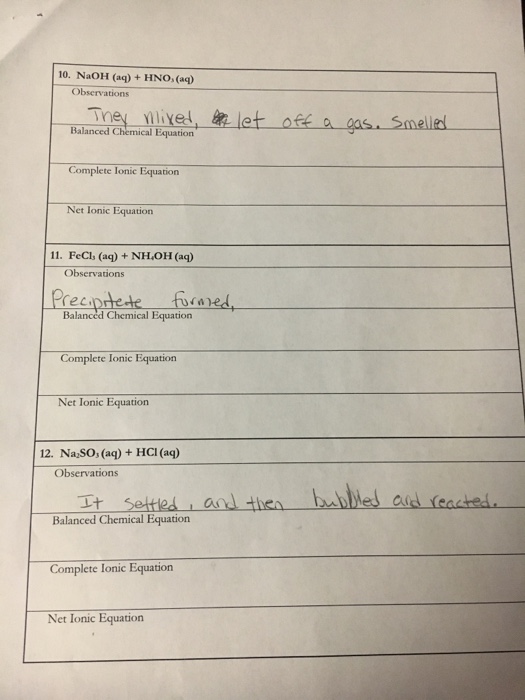 10. NaOH (aq) + HNO₃ (aq)
Observations
They mixed, let off a gas. Smelled
Balanced Chemical Equation
Complete Ionic Equation
Net Ionic Equation
11. FeCl₃ (aq) + NH₄OH (aq)
Observations
Precipitate formed,
Balanced Chemical Equation
Complete Ionic Equation
Net Ionic Equation
12. Na₂SO₃ (aq) + HCl (aq)
Observations
It settled, and then bubbled and reacted.
Balanced Chemical Equation
Complete Ionic Equation
Net Ionic Equation